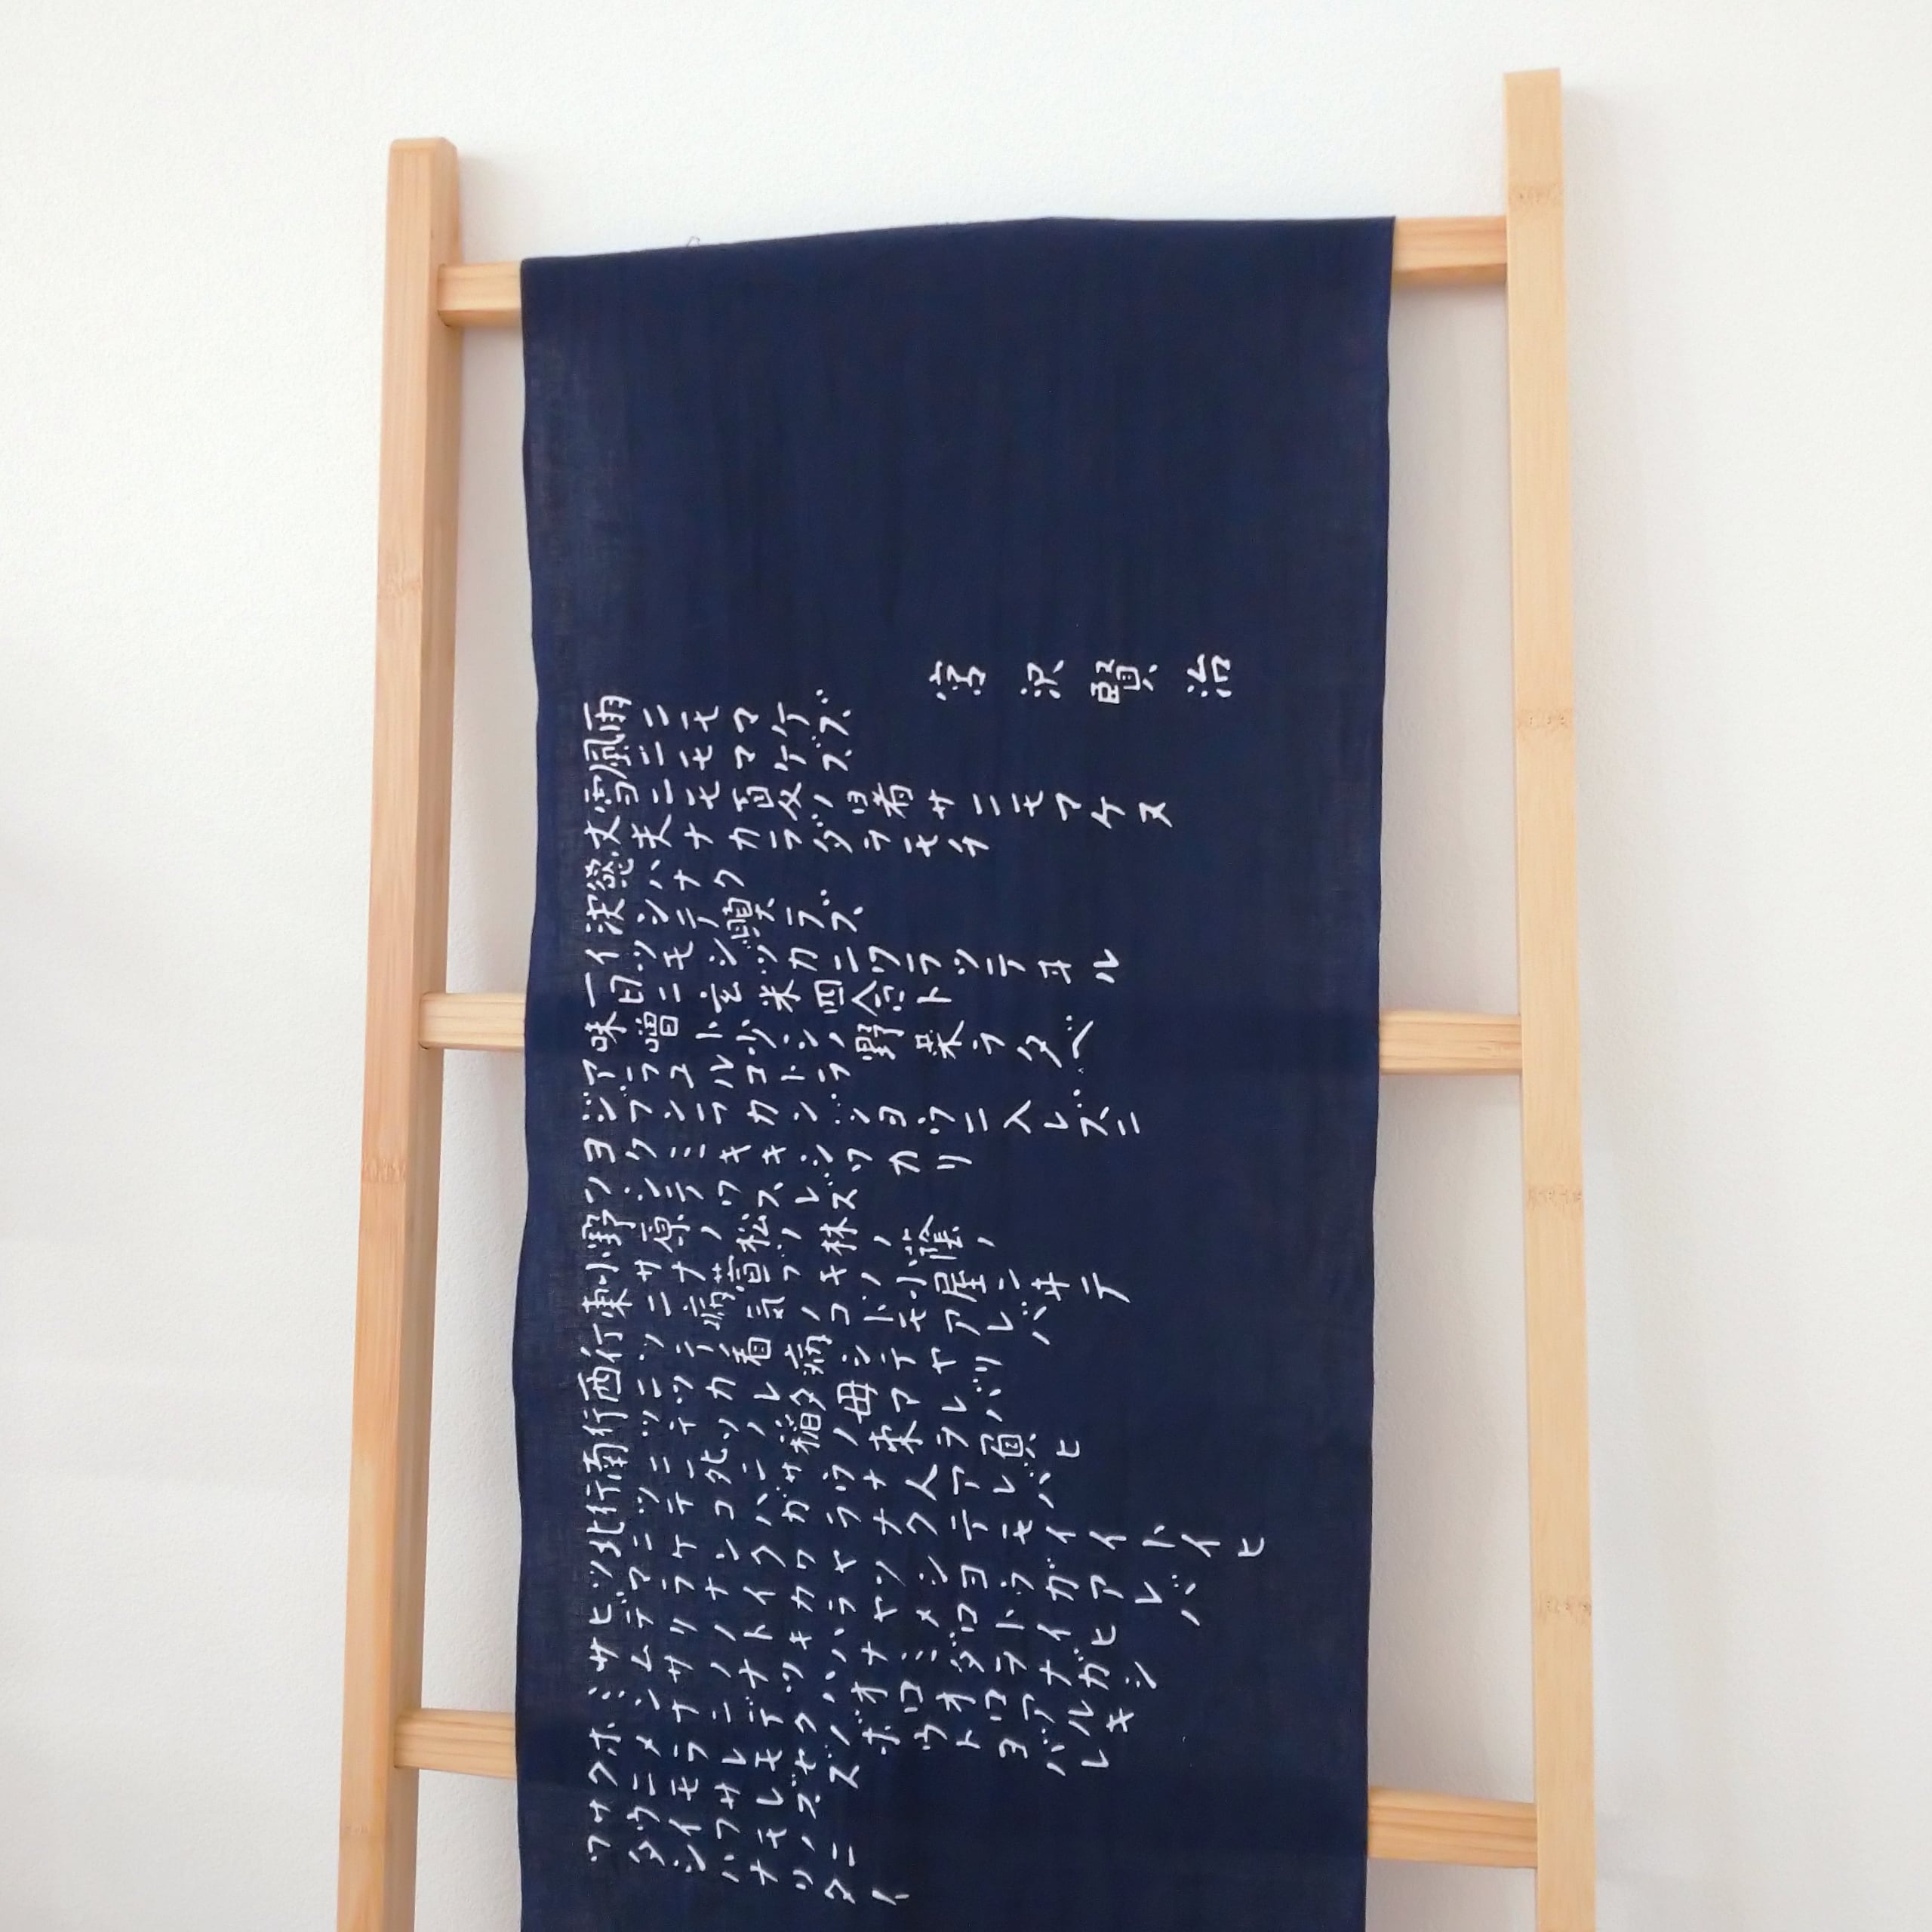 宮沢賢治
雨ニモマケズ
風ニモマケズ
雪ニモ夏ノ暑サニモマケヌ
丈夫ナカラダヲモチ
慾ハナク
決シテ瞋ラズ
イツモシヅカニワラツテヰル
一日ニ玄米四合ト
味噌ト少シノ野菜ヲタベ
アラユルコトヲ
ジブンヲカンジヨウニ入レズニ
ヨクミキキシワカリ
ソシテワスレズ
野原ノ松ノ林ノ蔭ノ
小サナ萱ブキノ小屋ニヰテ
東ニ病気ノコドモアレバ
行ツテ看病シテヤリ
西ニツカレタ母アレバ
行ツテソノ稲ノ束ヲ負ヒ
南ニ死ニサウナ人アレバ
行ツテコハガラナクテモイイトイヒ
北ニケンクワヤソシヨウガアレバ
ツマラナイカラヤメロトイヒ
ヒデリノトキハナミダヲナガシ
サムサノナツハオロオロアルキ
ミンナニデクノボウトヨバレ
ホメラレモセズ
クニモサレズ
サウイフモノニ
ワタシハナリタイ